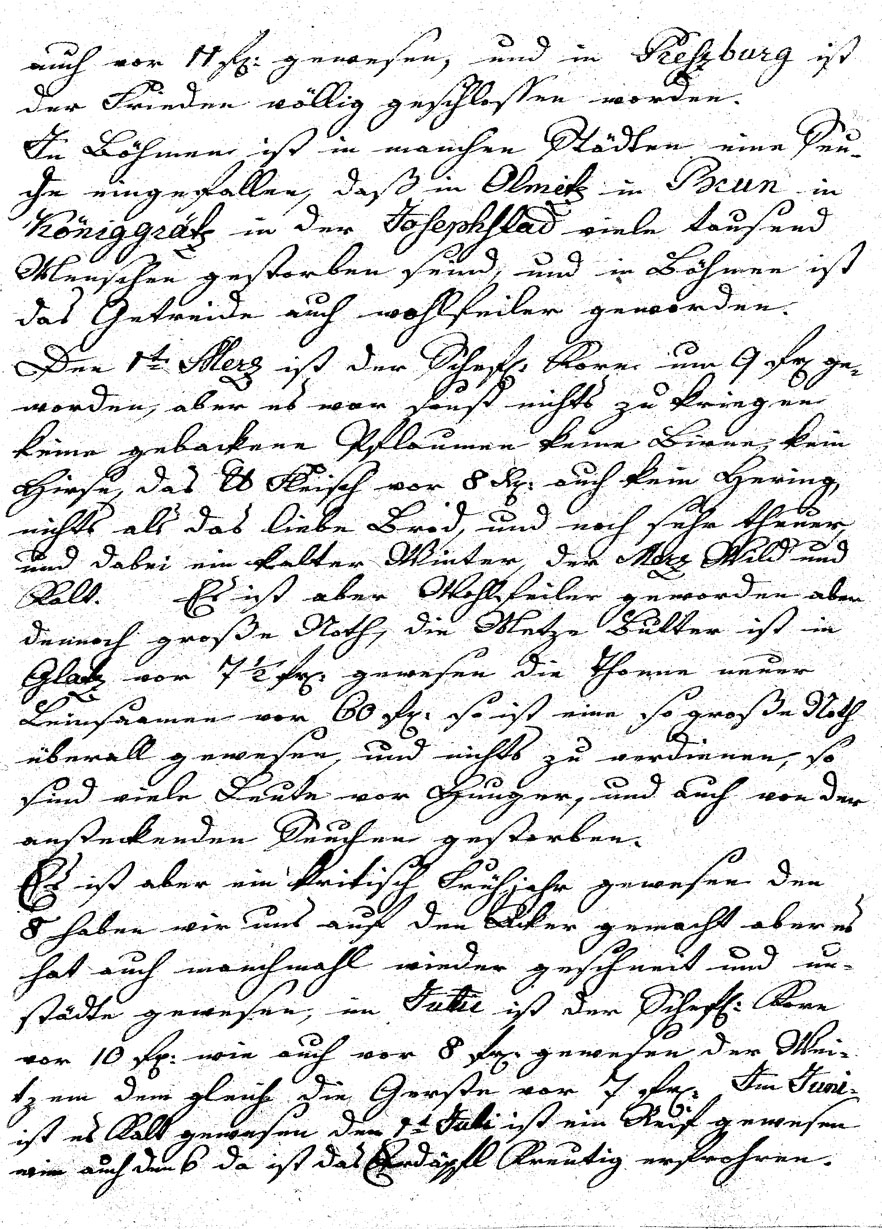 auch vor 11 fx: gewesen, und in Preßburg ist
der Frieden völlig geschlossen worden.
In Böhmen ist in manchen Städten eine Seu-
che eingefallen, daß in Olmitz in Brun in
Königgrätz in der Josephstad viele tausend
Menschen gestorben seind, und in Böhmen ist
das Getreide auch wohlfeiler geworden.
Den 1te Merz ist der Scheff: Korn um 9 fx ge-
worden, aber es war sonst nichts zu kriegen
keine gebackene Pflaumen keine Birne, kein
Hirse, das ℔ Fleisch vor 8 Kr: auch kein Hering,
nichts als das liebe Brod, und noch sehr theuer,
und dabei ein kalter Winter, der Merz Wild und
Kalt. Es ist aber Wohlfeiler geworden aber
dennoch große Noth, die Metze Butter ist in
Glatz vor 7 1/2 fx: gewesen die Thonne neuer
Leinsaamen vor 60 fx: so ist eine so große Noth
überall gewesen, und nichts zu verdienen, so
sind viele Leute vor Hunger, und auch von der
ansteckenden Seuchen gestorben.
Es ist aber ein kritisch Frühjahr gewesen den
8 haben wir uns auf den Acker gemacht aber es
hat auch manchmahl wieder geschneit und un-
städte gewesen, im Julii ist der Scheff: Korn
vor 10 fx: wie auch vor 8 fx: gewesen der Wei-
tzem dem gleich die Gerste vor 7 fx: Im Juni
ist es Kalt gewesen den 1t Juli ist ein Reif gewesen
wie auch den 6 da ist das Erdäpfl Kreutig erfrohren.